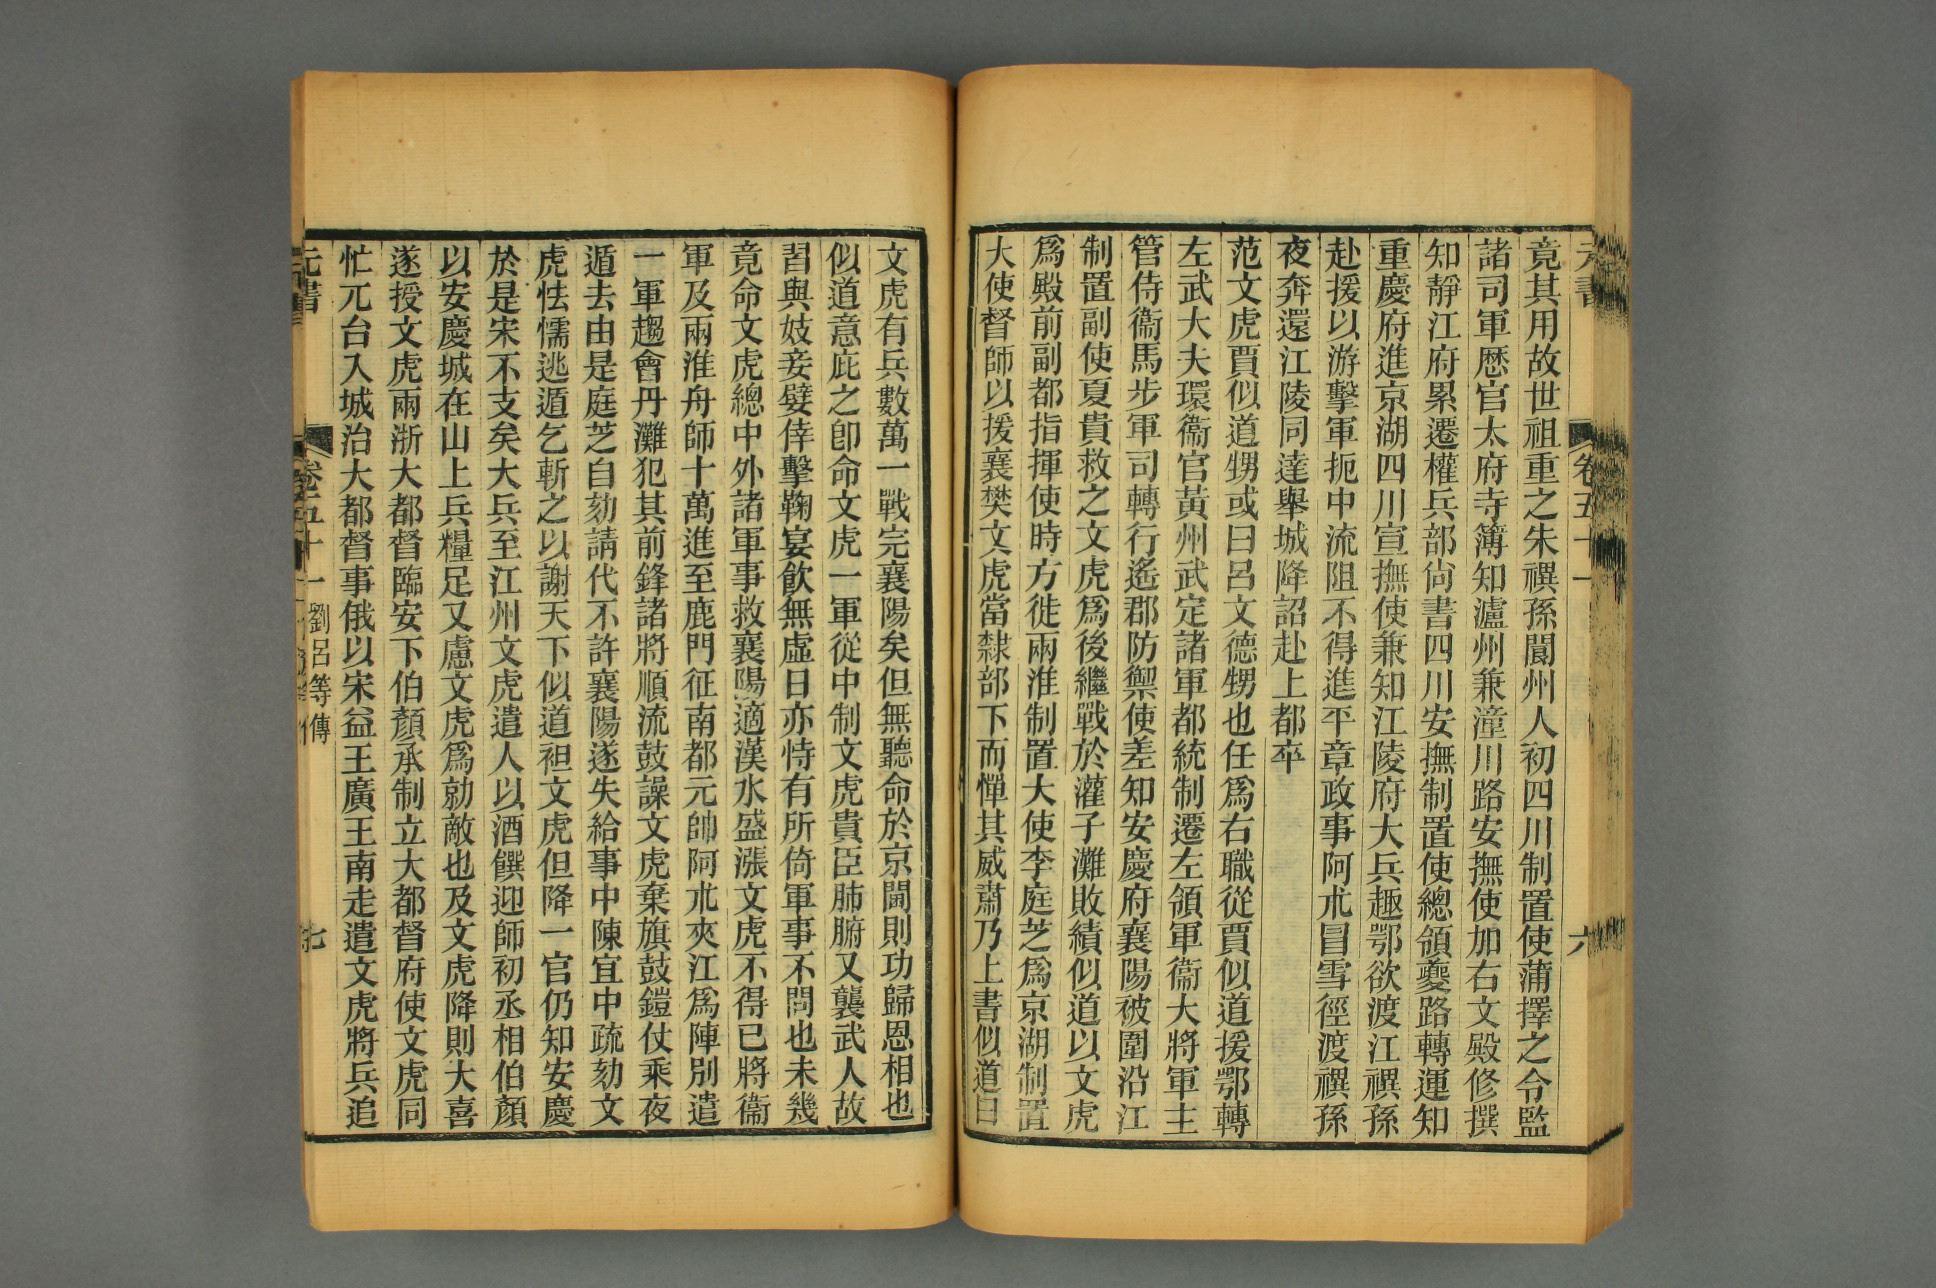 元書
卷五十一
六
竟其用故世祖重之朱禩孫閬州人初四川制置使蒲擇之令監
諸司軍歷官太府寺簿知瀘州兼潼川路安撫使加右文殿修撰
知靜江府累遷權兵部尙書四川安撫制置使總領夔路轉運知
重慶府進京湖四川宣撫使兼知江陵府大兵趣鄂欲渡江禩孫
赴援以游擊軍扼中流阻不得進平章政事阿朮冒雪徑渡禩孫
夜奔還江陵同達舉城降詔赴上都卒
范文虎賈似道甥或曰呂文德甥也任爲右職從賈似道援鄂轉
左武大夫環衞官黃州武定諸軍都統制遷左領軍衞大將軍主
管侍衞馬步軍司轉行遙郡防禦使差知安慶府襄陽被圍沿江
制置副使夏貴救之文虎爲後繼戰於灌子灘敗績似道以文虎
爲殿前副都指揮使時方徙兩淮制置大使李庭芝爲京湖制置
大使督師以援襄樊文虎當隸部下而憚其威肅乃上書似道曰
文虎有兵數萬一戰完襄陽矣但無聽命於京閫則功歸恩相也
似道意庇之卽命文虎一軍從中制文虎貴臣肺腑又襲武人故
習與妓妾嬖倖擊鞠宴飮無虛日亦恃有所倚軍事不問也未幾
竟命文虎總中外諸軍事救襄陽適漢水盛漲文虎不得已將衞
軍及兩淮舟師十萬進至鹿門征南都元帥阿朮夾江爲陣別遣
一軍趨會丹灘犯其前鋒諸將順流鼓譟文虎棄旗鼓鎧仗乘夜
遁去由是庭芝自劾請代不許襄陽遂失給事中陳宜中疏劾文
虎怯懦逃遁乞斬之以謝天下似道袒文虎但降一官仍知安慶
於是宋不支矣大兵至江州文虎遣人以酒饌迎師初丞相伯顏
以安慶城在山上兵糧足又慮文虎爲勍敵也及文虎降則大喜
遂授文虎兩浙大都督臨安下伯顏承制立大都督府使文虎同
忙兀台入城治大都督事俄以宋益王廣王南走遣文虎將兵追
元書
卷五十一
劉呂等傳
七